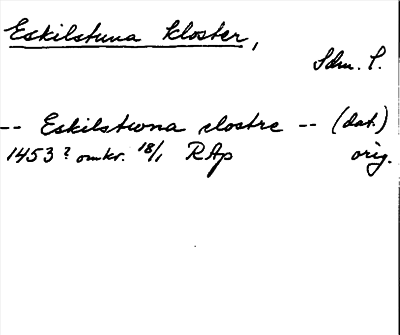 Eskilstuna kloster,
Sdm. l.
-- Eskilstwna clostre -- (dat.)
1453? omkr. 18/1 RAp orig.